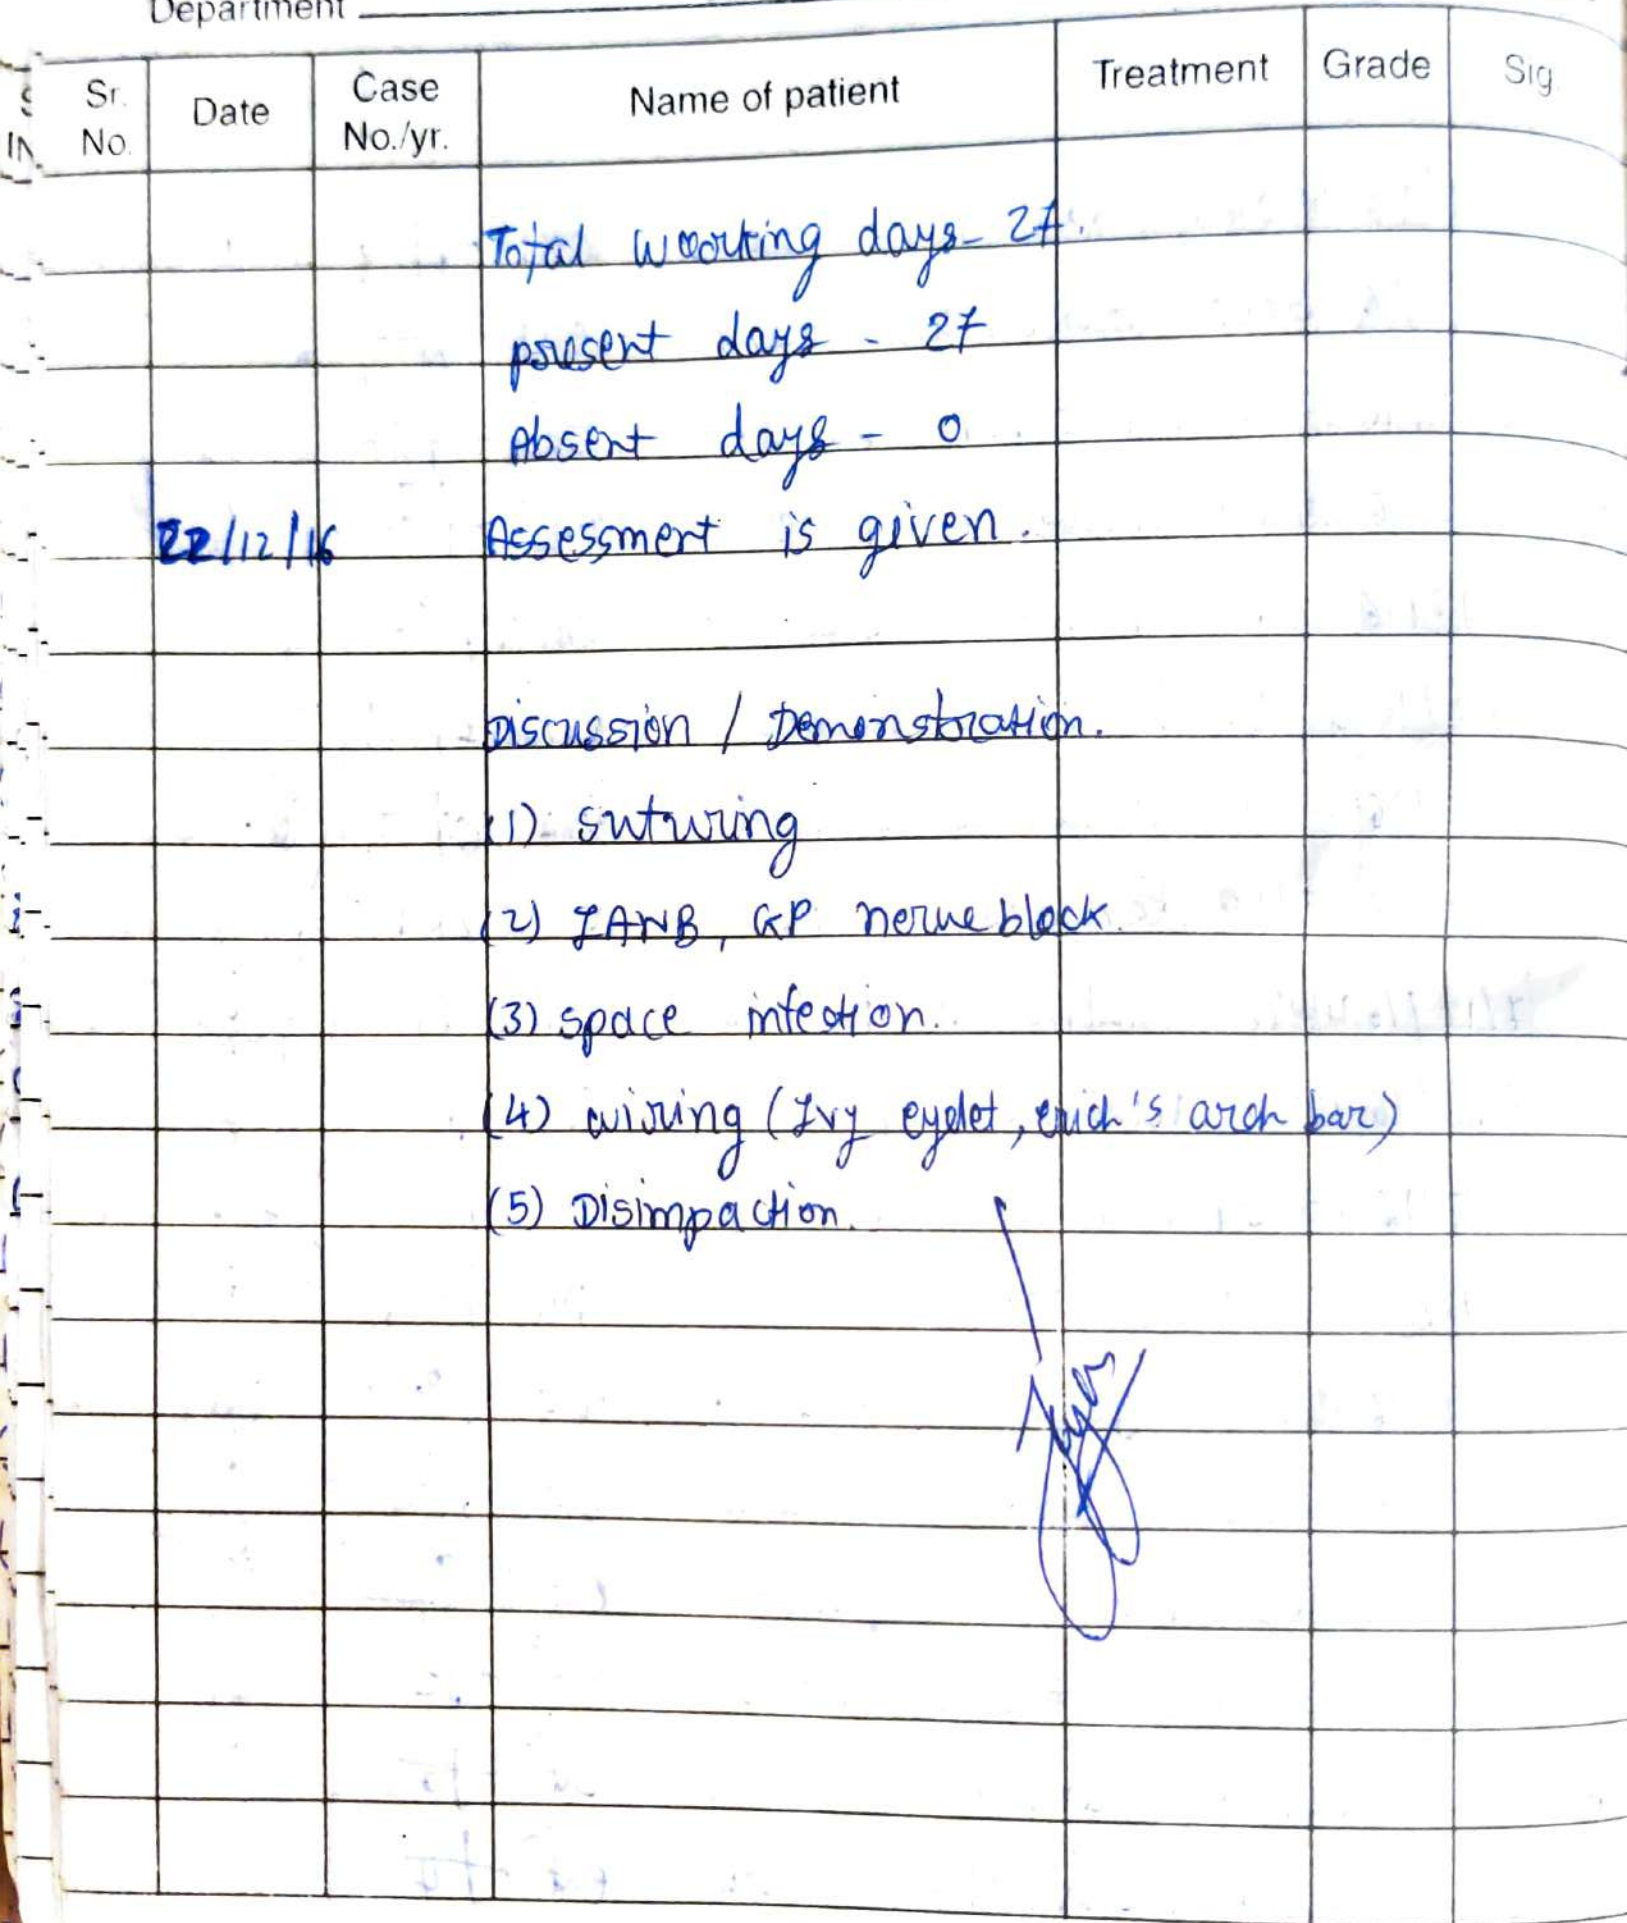 Department
Sr. No. Date Case No./yr. Name of patient Treatment Grade Sig
Total working days - 27.
present days - 27
Absent days - 0
22/12/16 Assessment is given.
Discussion / Demonstration.
(1) suturing
(2) IANB, GP nerve block.
(3) space infection.
(4) wiring (Ivy eyelet, erich's arch bar)
(5) Disimpaction.